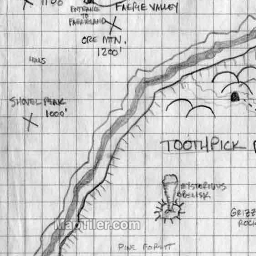 1100
ENTRANCE
TO
FAERIELAND
FAERIE VALLEY
ORE MTN.
1200'
SHOVEL PEAK
1000'
TOOTHPICK
MYSTERIOUS
OBELISK
GRIZZ
ROCK
MapTiler.com
PINE FOREST